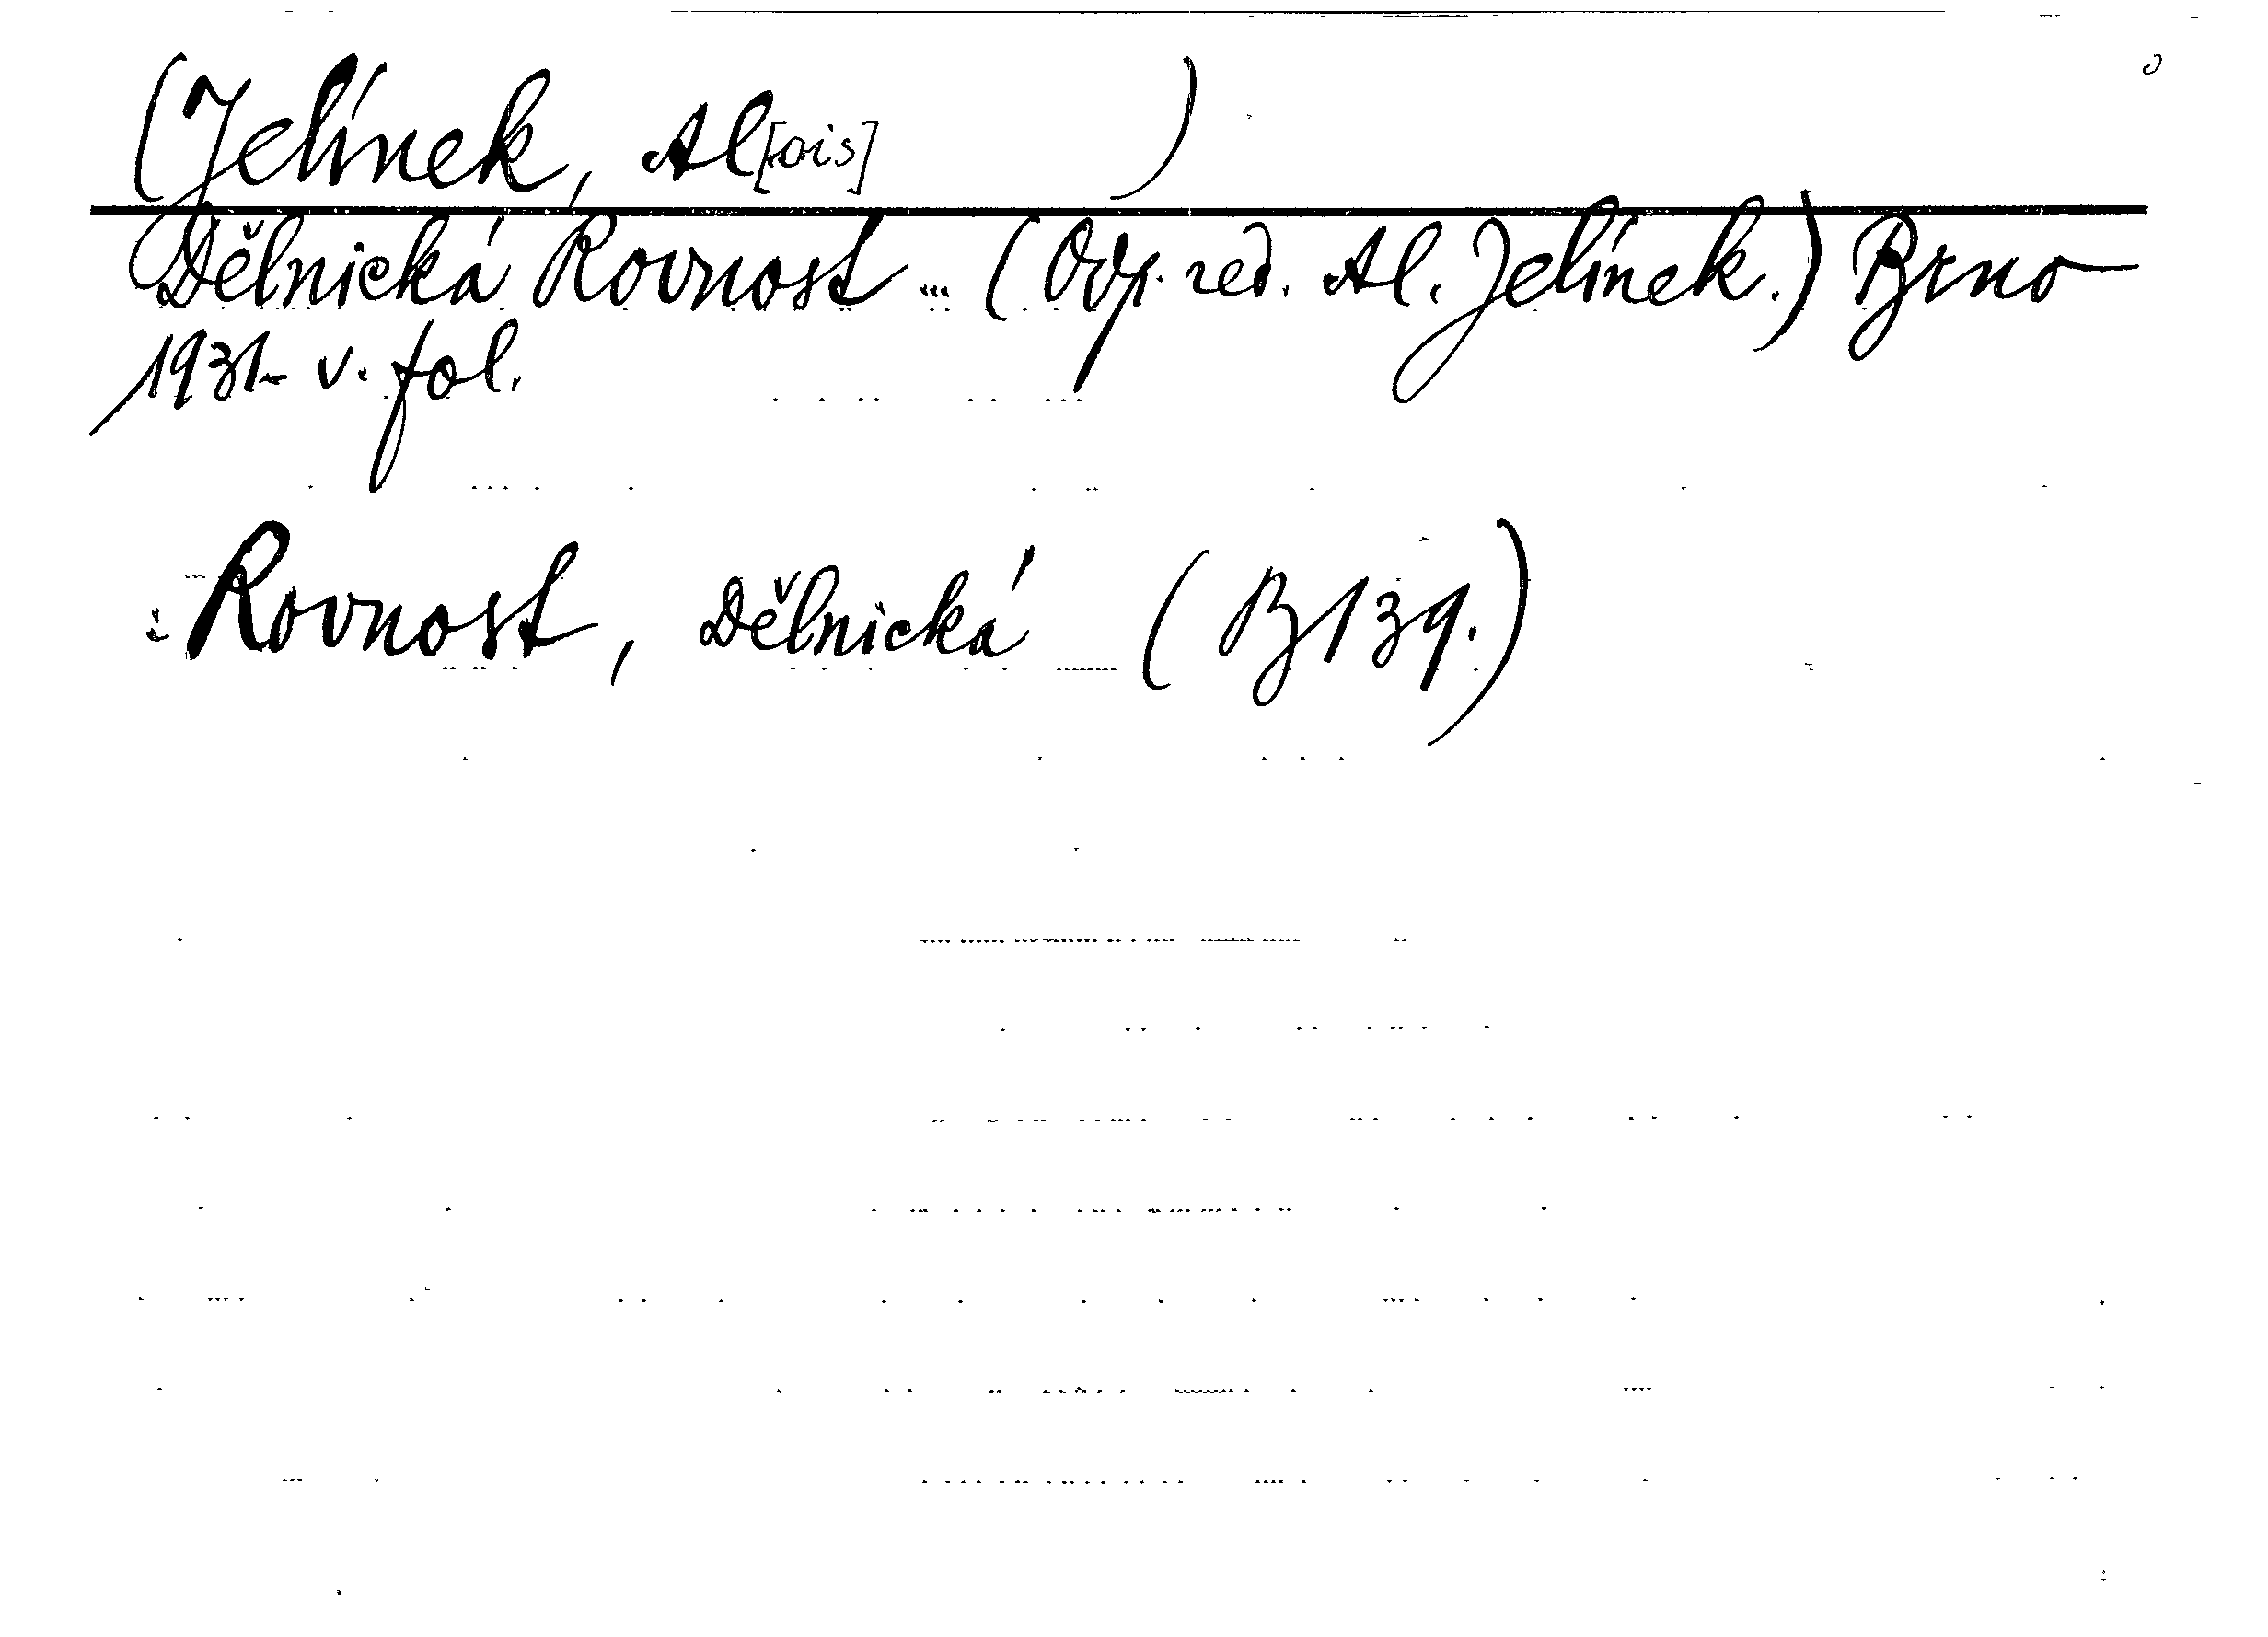 (Jelínek, Al[ois] )
Dělnická Rovnost ... (Odp. red. Al. Jelínek.) Brno
1931- v. fol.
: Rovnost, Dělnická (B 139.)